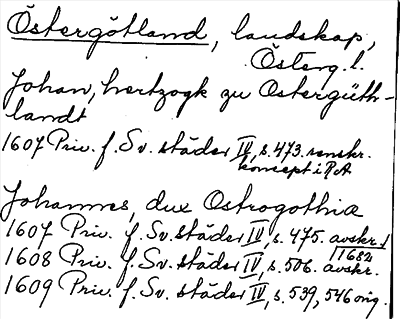 Östergötland, landskap,
Österg. l.
Johan, hertzogk zu Ostergüth-
landt
1607 Priv. f. Sv. städer IV, s. 473. renskr.
koncept i RA
Johannes, dux Ostrogothia
1607 Priv. f. Sv. städer IV, s. 475. avskr. f
1682
1608 Priv. f. Sv. städer IV, s. 506. avskr.
1609 Priv. f. Sv. städer IV, s. 539, 546 orig.